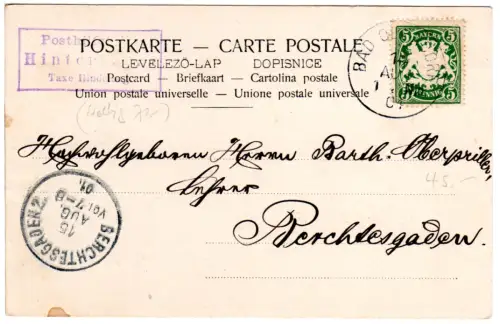 POSTKARTE — CARTE POSTALE
LEVELEZŐ-LAP DOPISNICE
Postcard — Briefkaart — Cartolina postale
Union postale universelle — Unione postale universale
BAYERN
5 5
PFENNIG
BAD
Hochwohlgeboren Herrn Barth. Oberpriller,
Lehrer
45.-
Berchtesgaden.
BERCHTESGADEN 2
15
AUG.